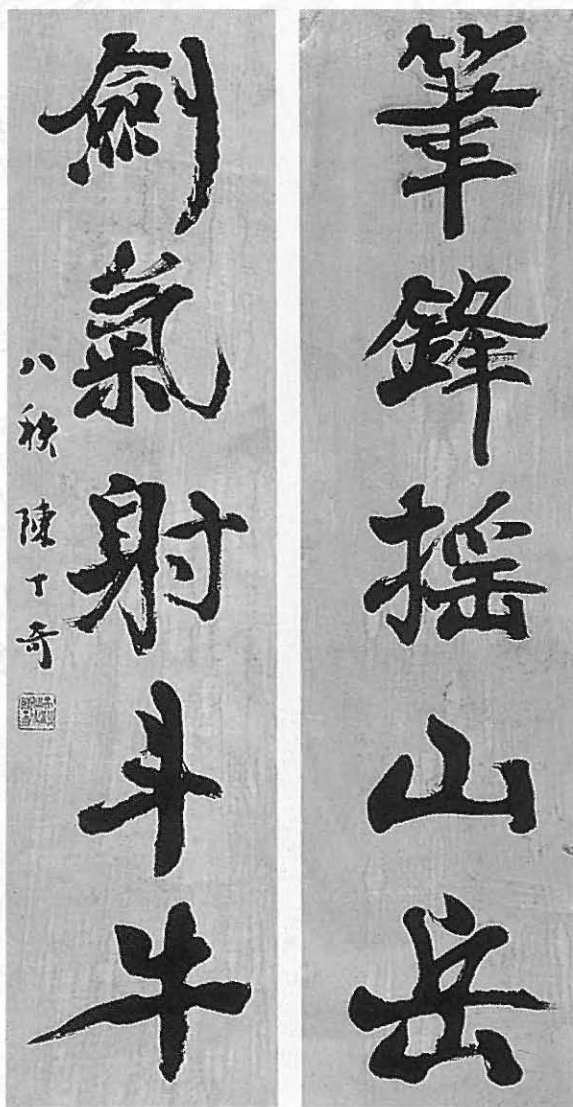 筆鋒搖山岳
劍氣射斗牛
八秩陳丁奇